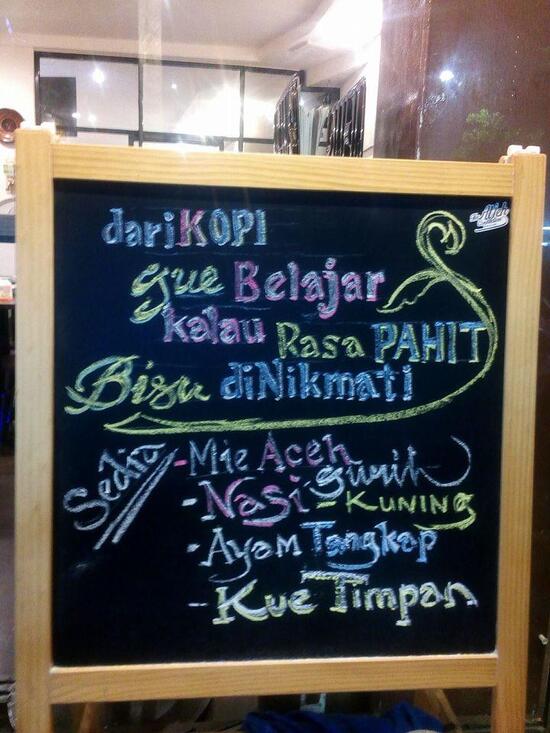 dari KOPI
gue Belajar
kalau Rasa PAHIT
Bisa diNikmati
Sedia
- Mie Aceh
- Nasi gurih
- KUNING
- Ayam Tangkap
- Kue Timpan